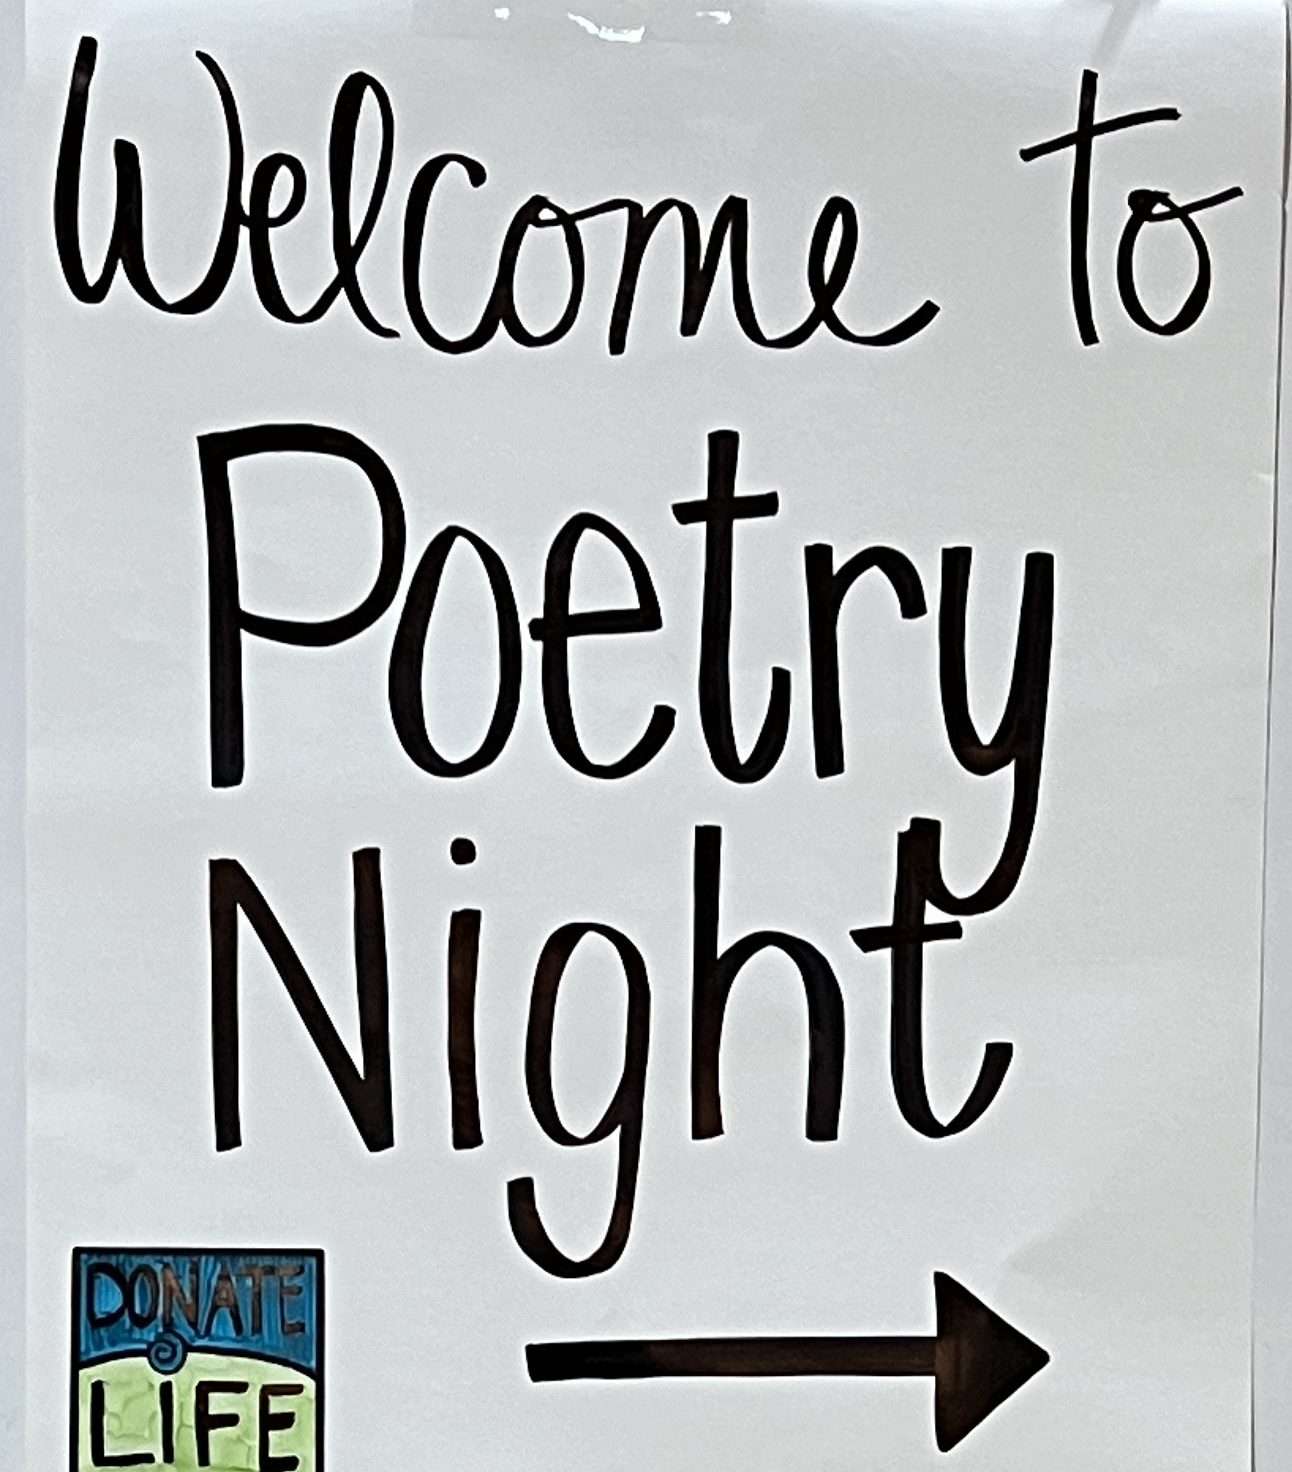 Welcome to
Poetry
Night
DONATE
LIFE